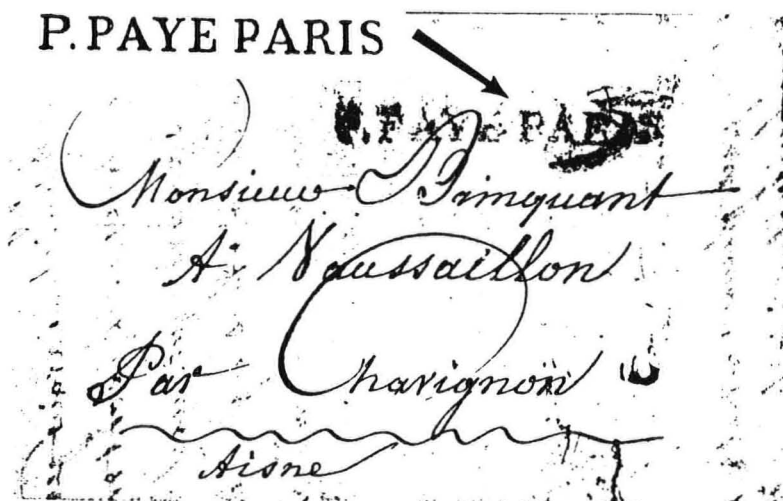 P. PAYE PARIS
P. PAYE PARIS
Monsieur Brinquant
A Vaussaillon
Par Chavignon
Aisne